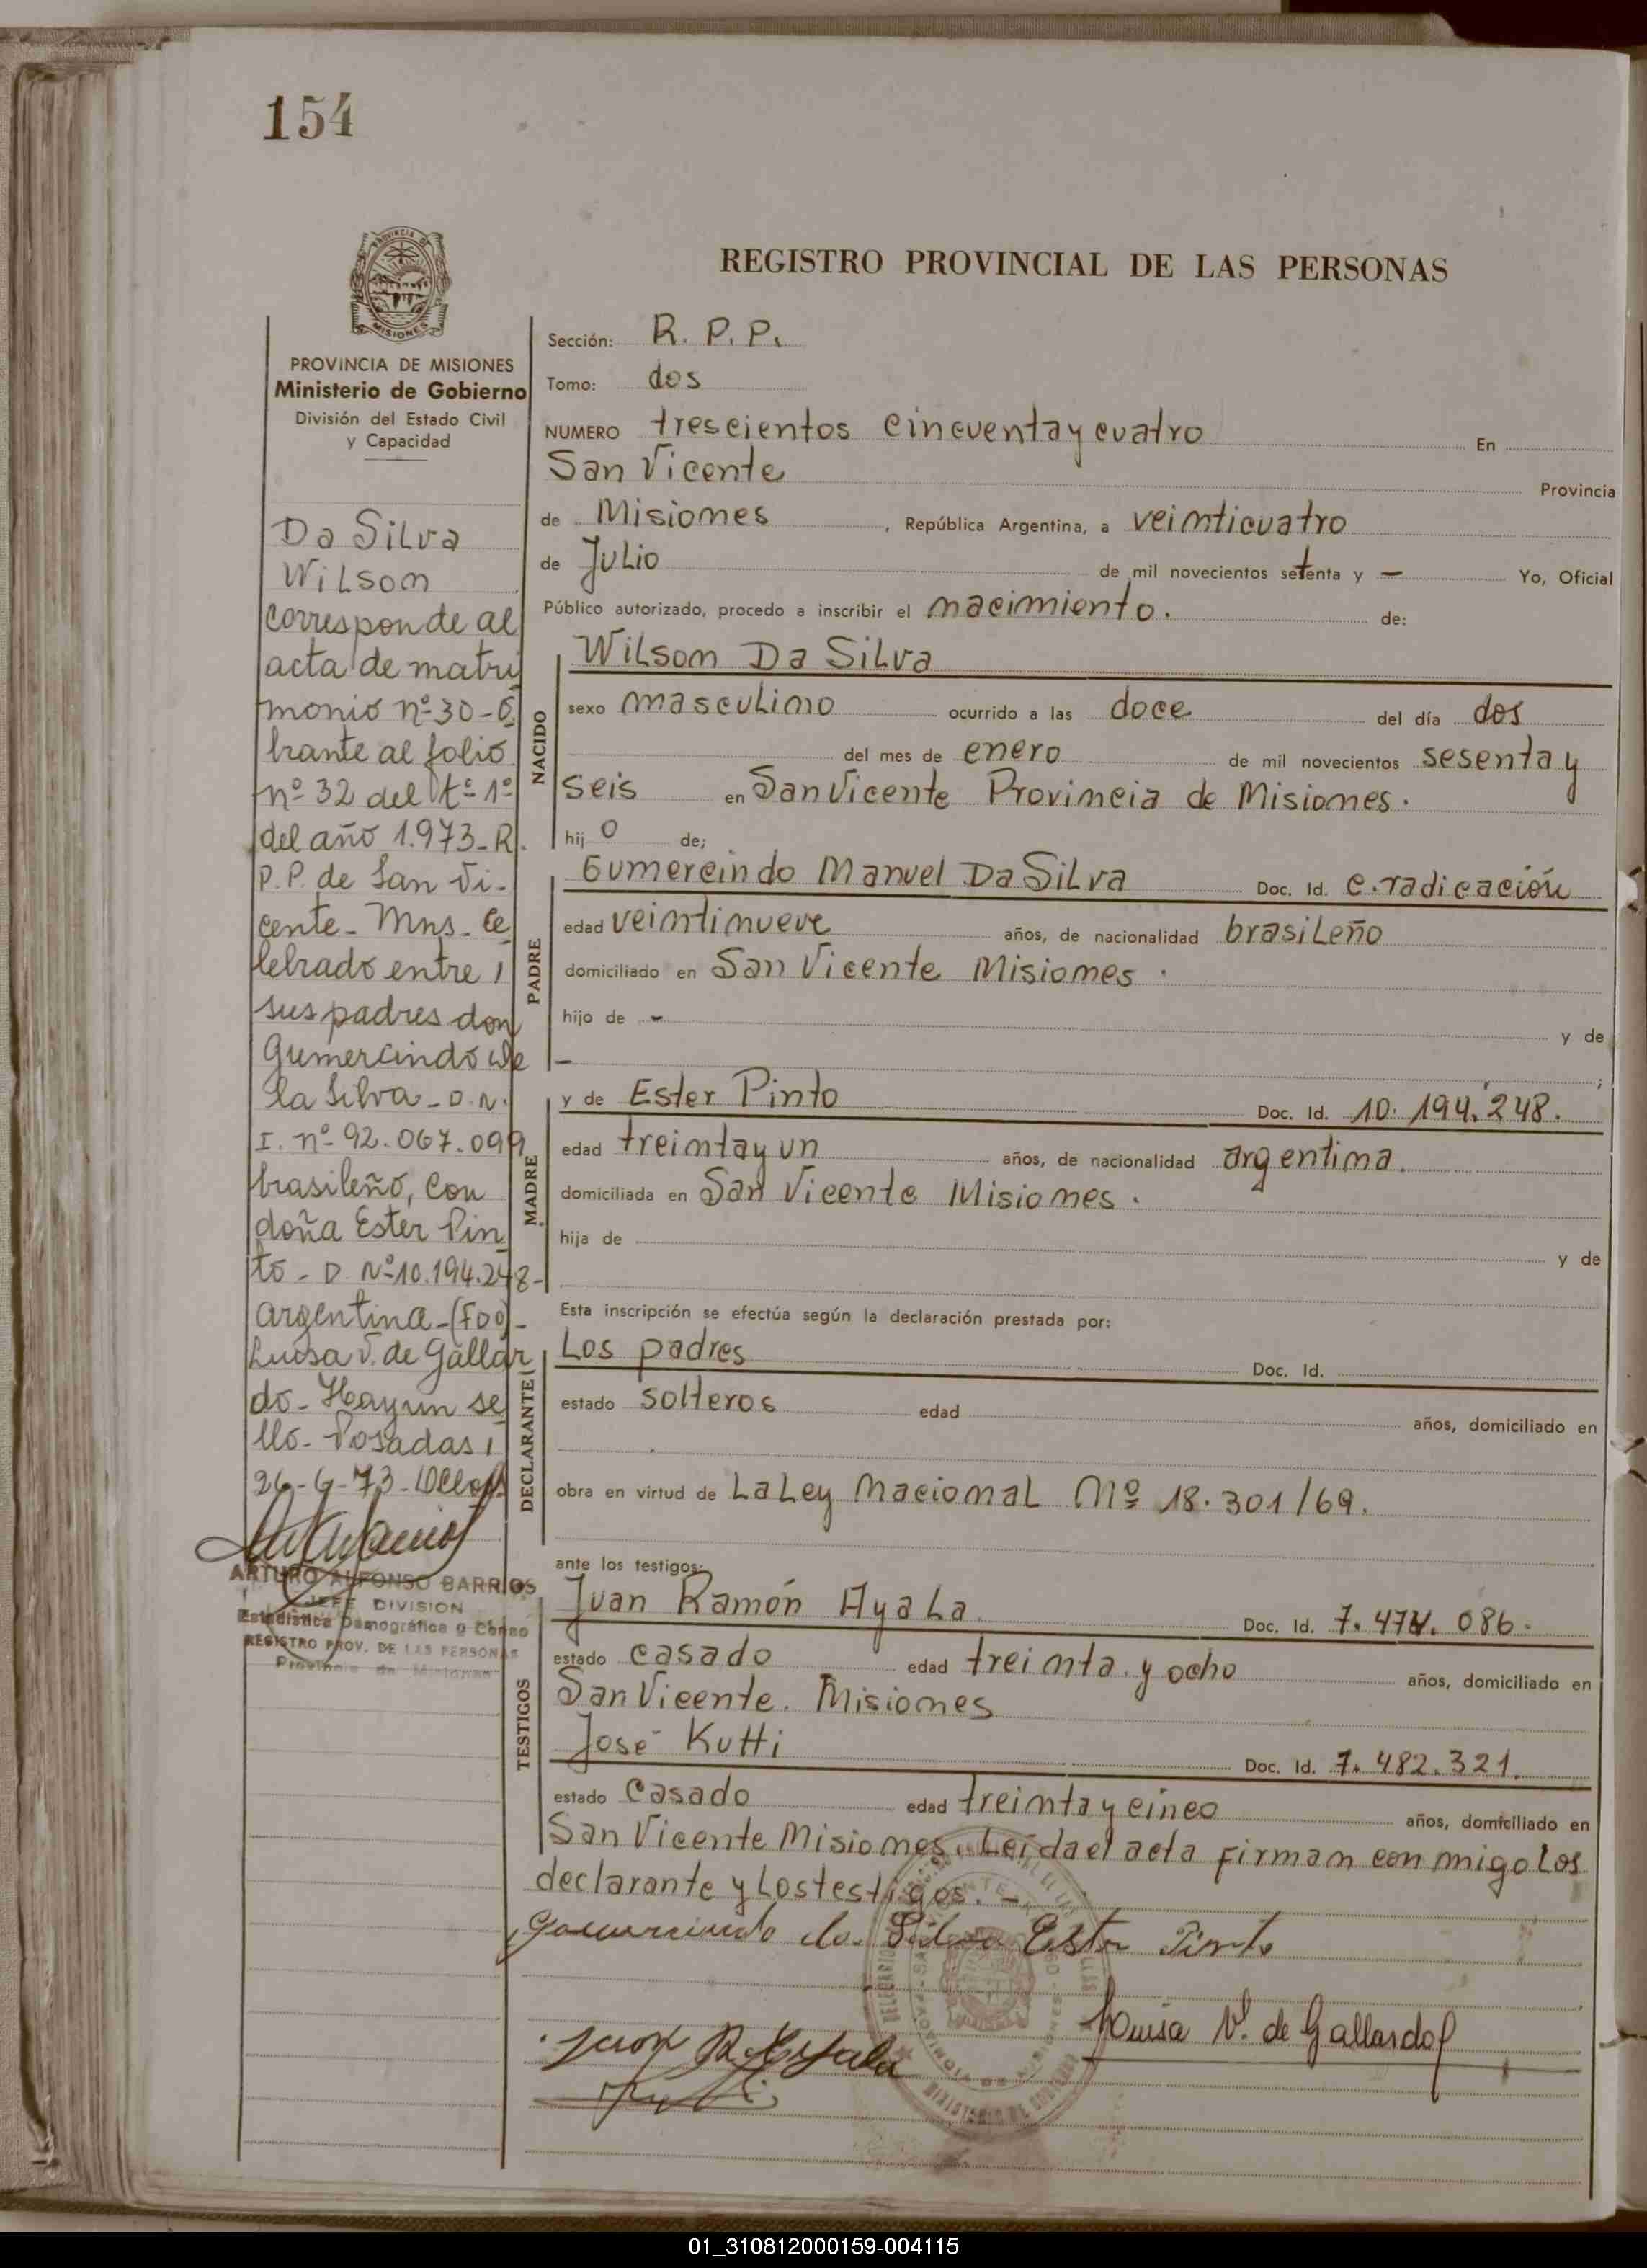 154
REGISTRO PROVINCIAL DE LAS PERSONAS
PROVINCIA DE MISIONES
Ministerio de Gobierno
División del Estado Civil
y Capacidad
Da Silva
Wilson
corresponde al
acta de matri
monio nº 30-O
brante al folio
nº 32 del tº 1º
del año 1.973-R.
P.P. de San Vi-
cente - Mns. Ce
lebrado entre
sus padres don
Gumercindo de
la Silva - D.N.
I. nº 92.067.099
brasileño, con
doña Ester Pin
to - D. Nº 10.194.248-
argentina-(Fdo)-
Luisa V. de Gallar
do - Hay un se
llo - Posadas,
26-6-73
ARTURO ALFONSO BARRIOS
JEFE DIVISION
Estadística Demográfica o Censo
REGISTRO PROV. DE LAS PERSONAS
Provincia de Misiones
Sección: R. P. P.
Tomo: dos
NUMERO trescientos cincuenta y cuatro En
San Vicente Provincia
de Misiones, República Argentina, a veinticuatro
de Julio de mil novecientos setenta y — Yo, Oficial
Público autorizado, procedo a inscribir el nacimiento. de:
NACIDO
Wilson Da Silva
sexo masculino ocurrido a las doce del día dos
del mes de enero de mil novecientos sesenta y
seis en San Vicente Provincia de Misiones.
hij o de;
PADRE
Gumercindo Manuel Da Silva Doc. Id. c.radicación
edad veintinueve años, de nacionalidad brasileño
domiciliado en San Vicente Misiones.
hijo de - y de
— ;
MADRE
y de Ester Pinto Doc. Id. 10.194.248.
edad treinta y un años, de nacionalidad argentina.
domiciliada en San Vicente Misiones.
hija de y de
Esta inscripción se efectúa según la declaración prestada por:
DECLARANTE
Los padres Doc. Id.
estado solteros edad años, domiciliado en
obra en virtud de La Ley Nacional Nº 18.301/69.
ante los testigos:
TESTIGOS
Juan Ramón Ayala Doc. Id. 7.474.086.
estado casado edad treinta y ocho años, domiciliado en
San Vicente. Misiones
José Kutti Doc. Id. 7.482.321.
estado casado edad treinta y cinco años, domiciliado en
San Vicente Misiones. Leída el acta firman conmigo los
declarante y los testigos. —
Gumercindo da Silva Ester Pinto
Juan R. Ayala
Louisa V. de Gallardo
01_310812000159-004115